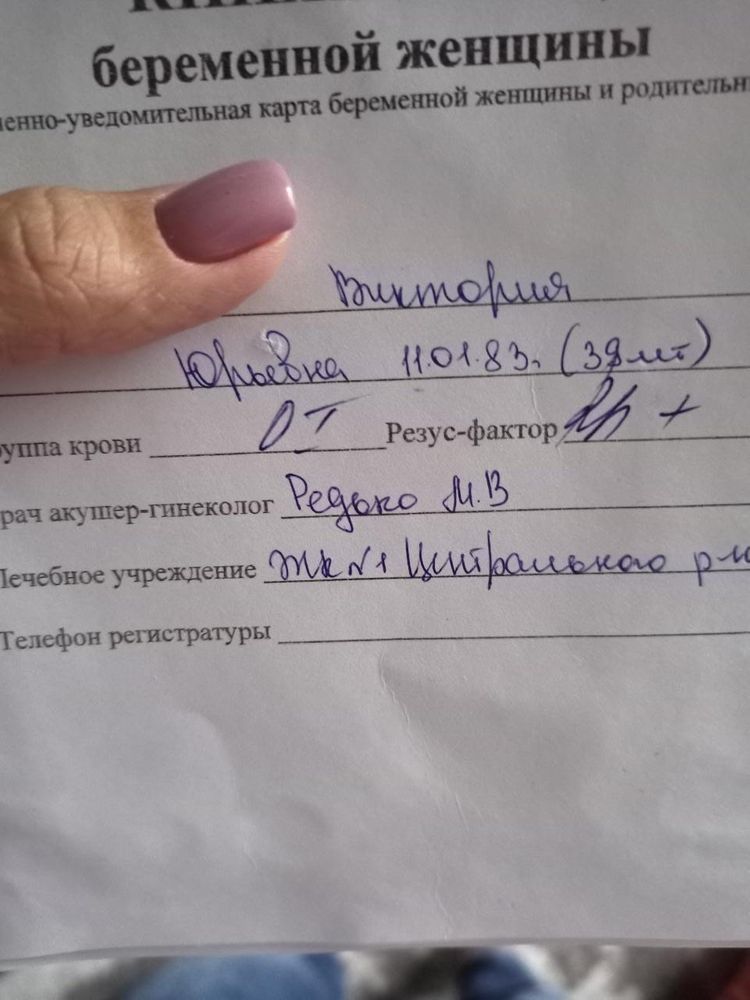 беременной женщины
менно-уведомительная карта беременной женщины и родительн
Виктория
Юрьевна 11.01.83г. (39 лет)
руппа крови 0 I Резус-фактор Rh +
рач акушер-гинеколог Редько М.В
Лечебное учреждение ЖК №1 Центрального р-на
Телефон регистратуры